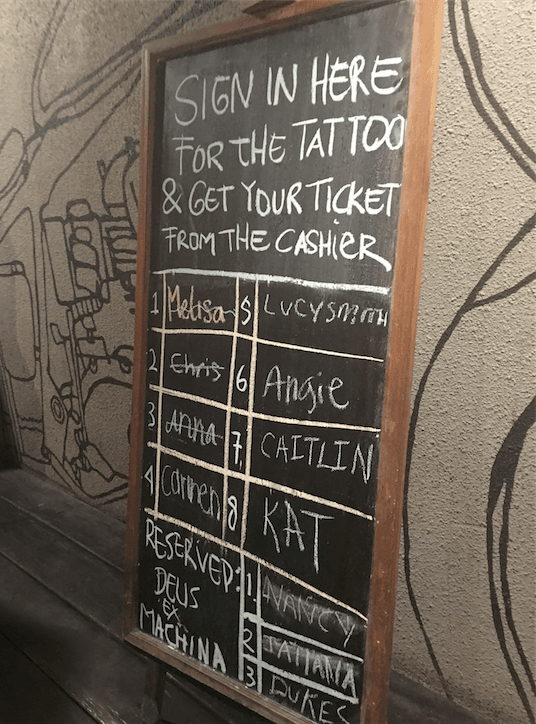 SIGN IN HERE
FOR THE TATTOO
& GET YOUR TICKET
FROM THE CASHIER
1 Melisa 5 LUCYSMITH
2 Chris 6 Angie
3 anna 7 CAITLIN
4 Carmen 8 KAT
RESERVED: 1. NANCY
DEUS
EX
MACHINA 2 TATIANA
3 DUKES